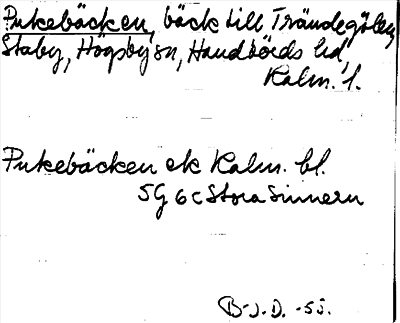 Pukebäcken, bäck till Trändegölen,
Staby, Högsby sn, Handbörds hd,
Kalm. l.
Pukebäcken ek Kalm. bl.
5G 6c Stora Sinnern
B-J.D. -55.